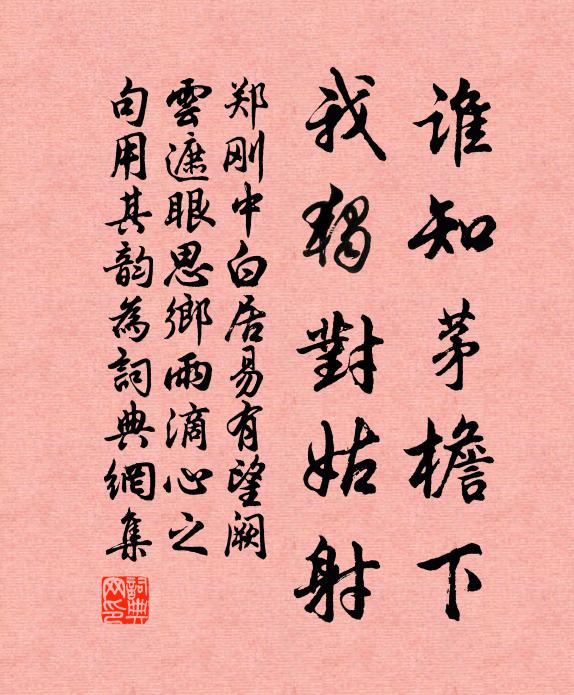 谁知茅檐下
我獨對姑射
郑刚中白居易有望阙
雲遮眼思鄉雨滴心之
句用其韵為詞典網集
詞典网印